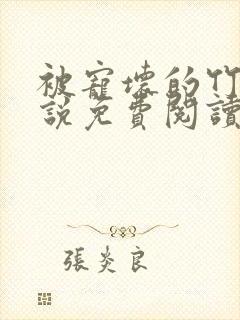 被寵壞的竹
說免費閱讀
張炎良